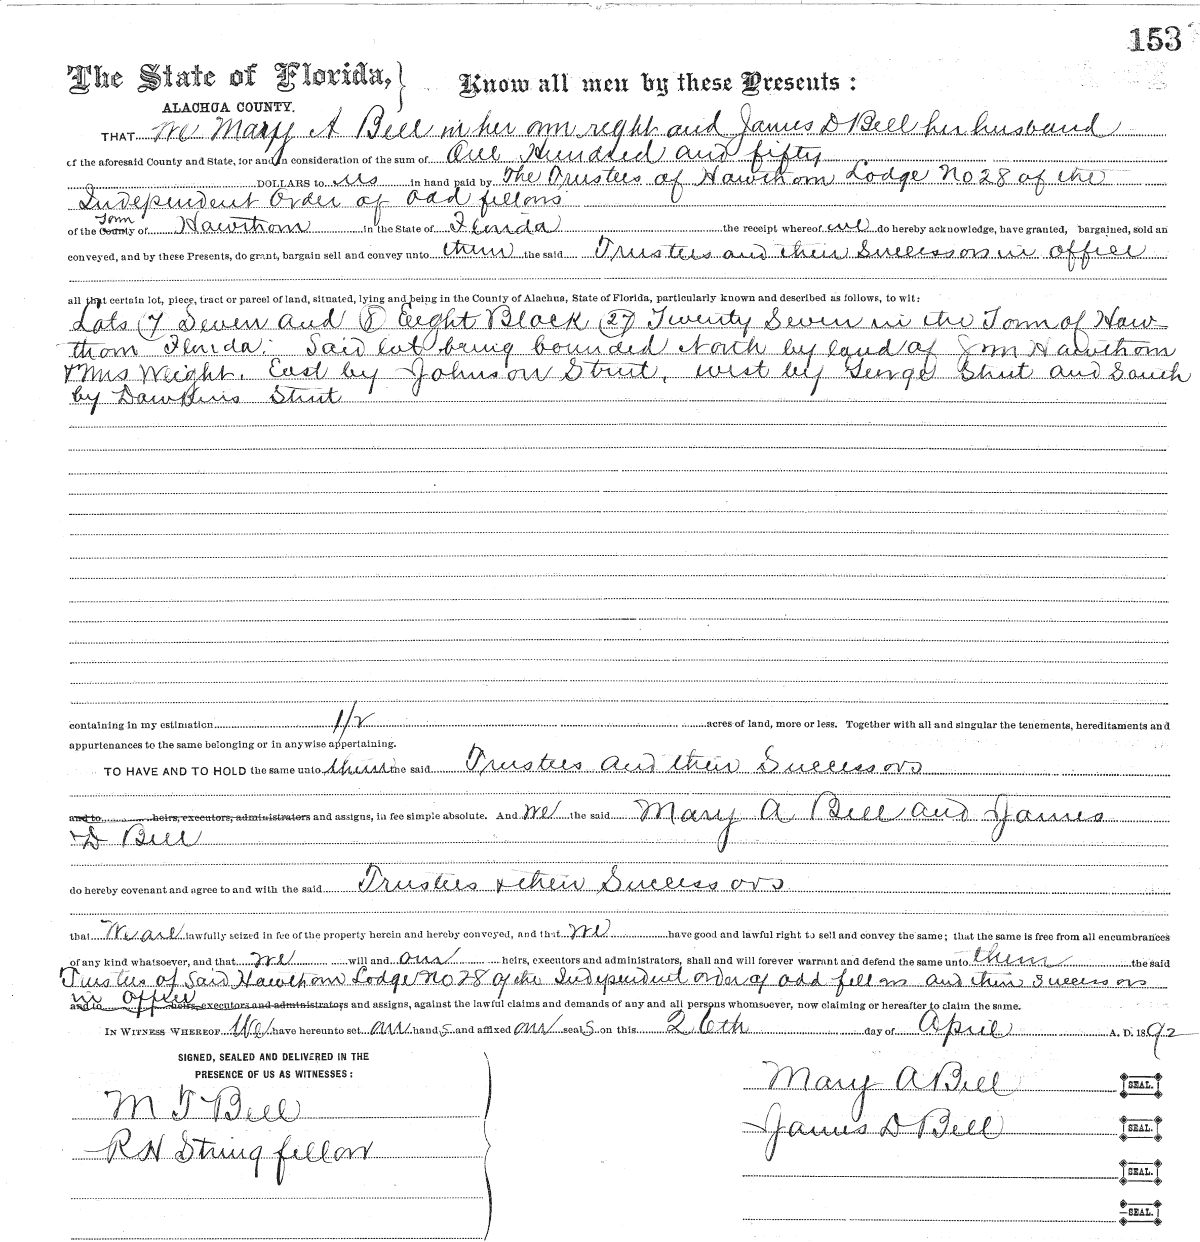 153
The State of Florida, Know all men by these Presents :
ALACHUA COUNTY.
THAT We Mary A Bell in her own right and James D Bell her husband
of the aforesaid County and State, for and in consideration of the sum of One Hundred and fifty
DOLLARS to us in hand paid by The Trustees of Hawthorn Lodge No 28 of the
Independent Order of Odd fellows
Town
of the County of Hawthorn in the State of Florida the receipt whereof we do hereby acknowledge, have granted, bargained, sold an
conveyed, and by these Presents, do grant, bargain sell and convey unto them the said Trustees and their Successors in office
all that certain lot, piece, tract or parcel of land, situated, lying and being in the County of Alachua, State of Florida, particularly known and described as follows, to wit:
Lots (7 Seven and (8) Eeight Block (27) Twenty Seven in the Town of Haw
thorn Florida. Said lot being bounded North by land of Hawthorn
& Mrs Weight. East by Johnson Street, west by George Street and South
by Dawkins Street
containing in my estimation 1/2 acres of land, more or less. Together with all and singular the tenements, hereditaments and
appurtenances to the same belonging or in anywise appertaining.
TO HAVE AND TO HOLD the same unto them the said Trustees and their Successors
and to heirs, executors, administrators and assigns, in fee simple absolute. And we the said Mary A Bell and James
D Bell
do hereby covenant and agree to and with the said Trustees & their Successors
that We are lawfully seized in fee of the property herein and hereby conveyed, and that we have good and lawful right to sell and convey the same; that the same is free from all encumbrances
of any kind whatsoever, and that we will and our heirs, executors and administrators, shall and will forever warrant and defend the same unto them the said
Trustees of Said Hawthorn Lodge No 28 of the Independent order of odd fellows and their Successors
in office
and to heirs, executors and administrators and assigns, against the lawful claims and demands of any and all persons whomsoever, now claiming or hereafter to claim the same.
IN WITNESS WHEREOF We have hereunto set our hands and affixed our seals on this 26th day of April A. D. 1892
SIGNED, SEALED AND DELIVERED IN THE
PRESENCE OF US AS WITNESSES :
M T Bell
R H Stringfellow
Mary A Bell SEAL.
James D Bell SEAL.
SEAL.
SEAL.